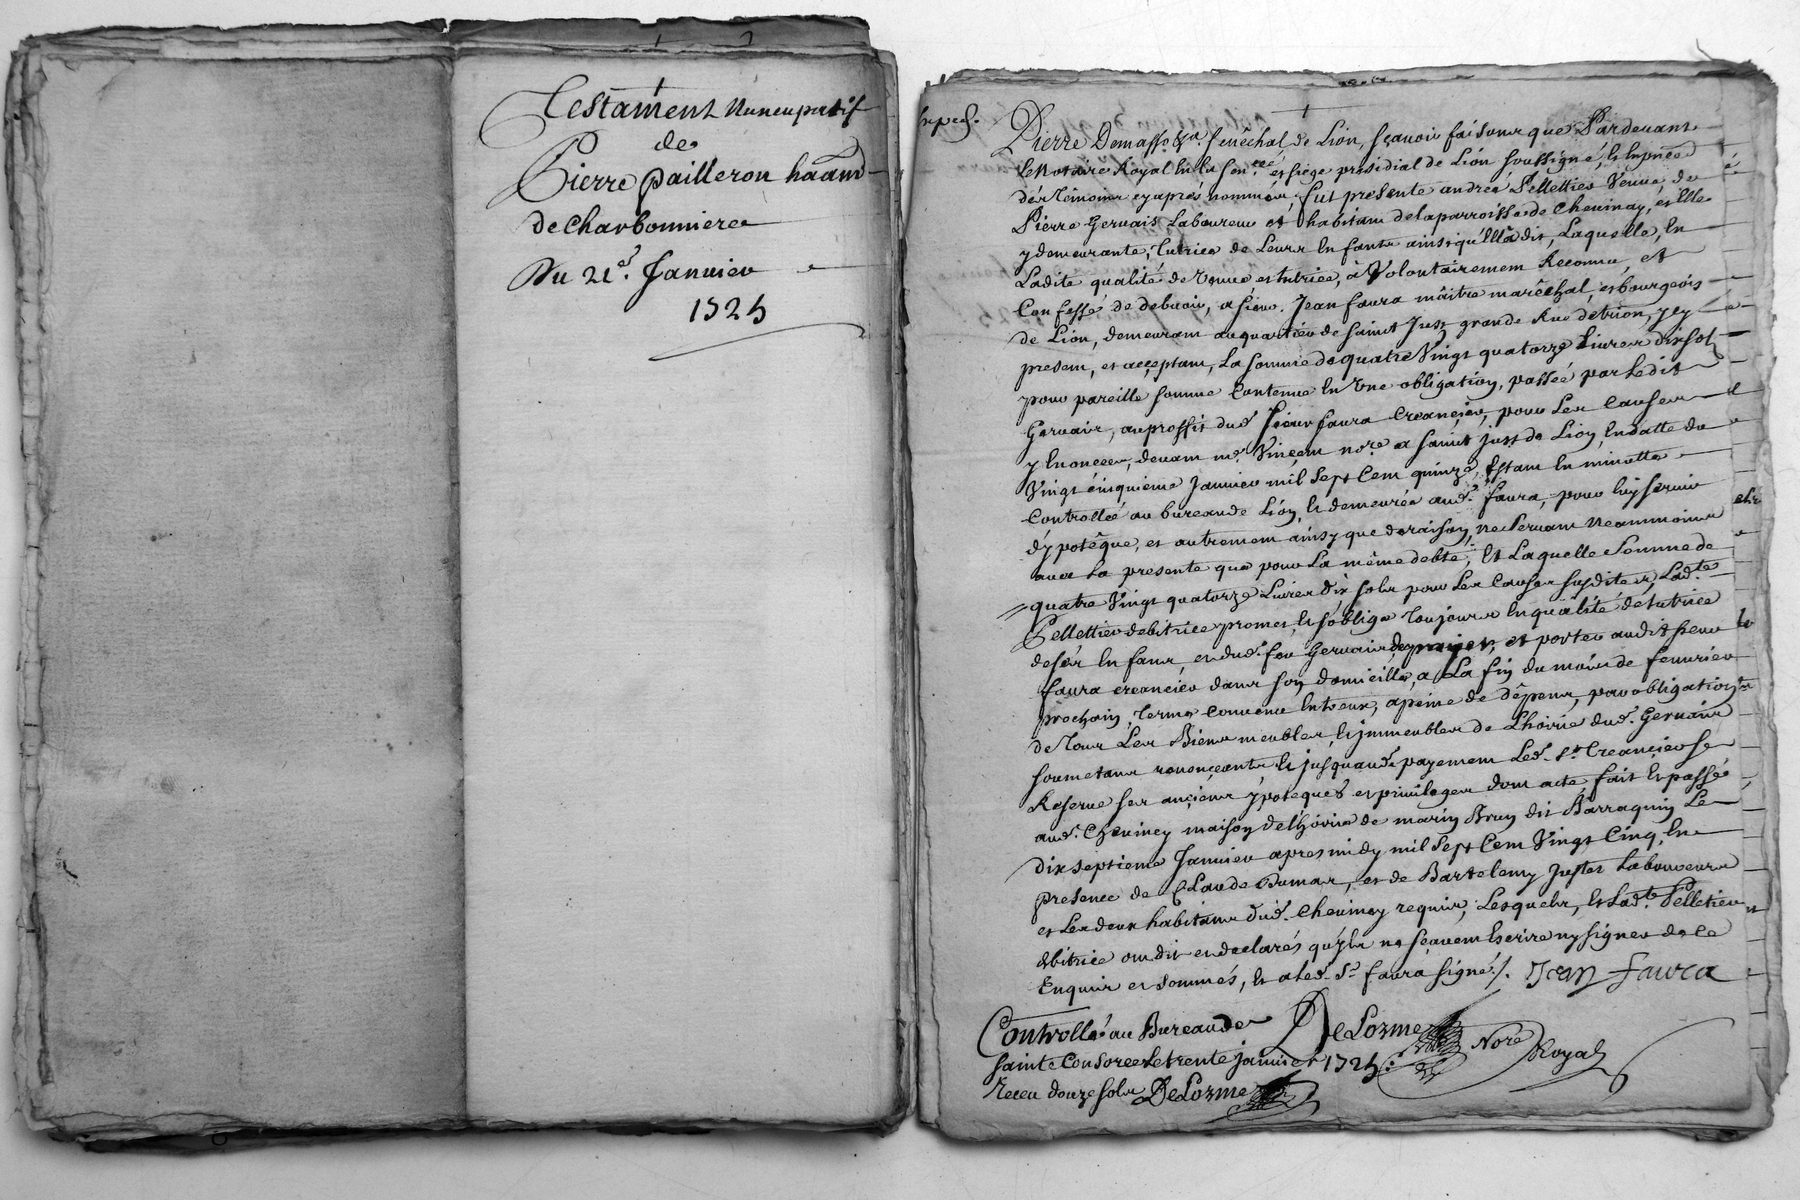 Testament Nuncupatif
de
Pierre pailleron haānt
de Charbonniere
Du 21e. Janvier
1725
Exped.
Pierre Demasso &a. senêchal de Lion, sçavoir faisons que Pardevant
le Notaire Royal en la sen.ceé et siege presidial de Lion soussigné, et en pñce
des Temoins cy aprés nommés, fut presente andreé Pellettier Veuve de
Pierre Gervais Laboureur et habitant de la parroisse de Chevinay, et Elle
y demeurante, Tutrice de Leurs Enfants ainsi qu'Ella dit, Laquelle, En
Ladite qualité de veuve et tutrice, à Volontairement Reconnu, et
Confessé de debvoir, a sieur Jean faura maître marêchal, et bourgeois
de Lion, demeurant au quartier de saint Just grande Rue de trion, Icy
present, et acceptant, La somme de quatre Vingt quatorze Livres dix sols
pour pareille somme Contenue En Une obligation, passée par Ledit
Gervais, au proffit dud. sieur faura Creancier, pour Les Causes
y Enoncees, devant me. Vincent nore. a saint just de Lion, En datte du
Vingt cinquieme Janvier mil sept Cent quinze, Estant En minutte
Controlleé au bureau de Lion, et demeurée aud. faura, pour luy servir
d'ypotêque, et autrement ainsy que de raison, ne servant Neammoins
avec La presente que pour La même debte; Et Laquelle somme de
quatre Vingt quatorze Livres Dix sols pour Les Causes susdites, Lad.te
Pellettier debitrice promet, et s'oblige Toujours En qualité de tutrice
de ses Enfans, et dud. feu Gervais de payer, et porter audit sieur
faura creancier dans son domicille, a La fin du mois de fevrier
prochain, Terme Convenu Entreux, a peine de dêpens, par obligation
de Tous Les Biens meubles, et jmmeubles de L'hoirie dud. Gervais
soumetans renonçeants et jusquaud. payement Led. sr. Creancier se
Reserve ses anciens ypoteques et privileges dont acte, fait et passé
aud. Cheviney maison de l'hoirie de marin Brun dit Barraquin Le
dix septieme Janvier apres midy mil sept Cent Vingt Cinq, En
presence de Claude Dumas, et de Bartelemy Juster Laboureurs
et Les deux habitans dud. Cheviney requis, Lesquels, et Lad.te Pelletier
debitrice ont dit et declarés qu'ils ne sçavent Escrire ny signer de ce
Enquis et sommés, et a Led. Sr. faura signé./. Jean faura
Controllé au Bureau de DeLorme
Nore Royal
sainte Consorce Le trente janvier 1725:
Receu douze sols DeLorme